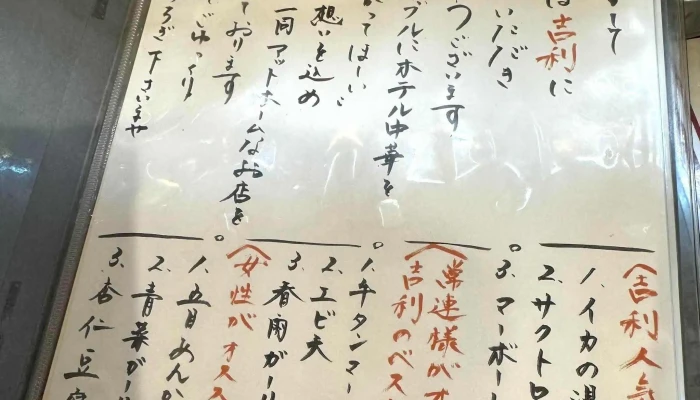 は吉利に
いただき
つございます
ブルにホテル中華を
がってほしい
想いを込め
一同アットホームなお店を
ております
ごゆっくり
つろぎ下さいませ
〈吉利人気
1、イカの湯
2、サクトロ
3、マーボー
〈常連様がオ
吉利のベス
1、牛タンマー
2、エビ天
3、春雨がー
〈女性がオスス
1、五目あんか
2、青菜がー
3、杏仁豆腐